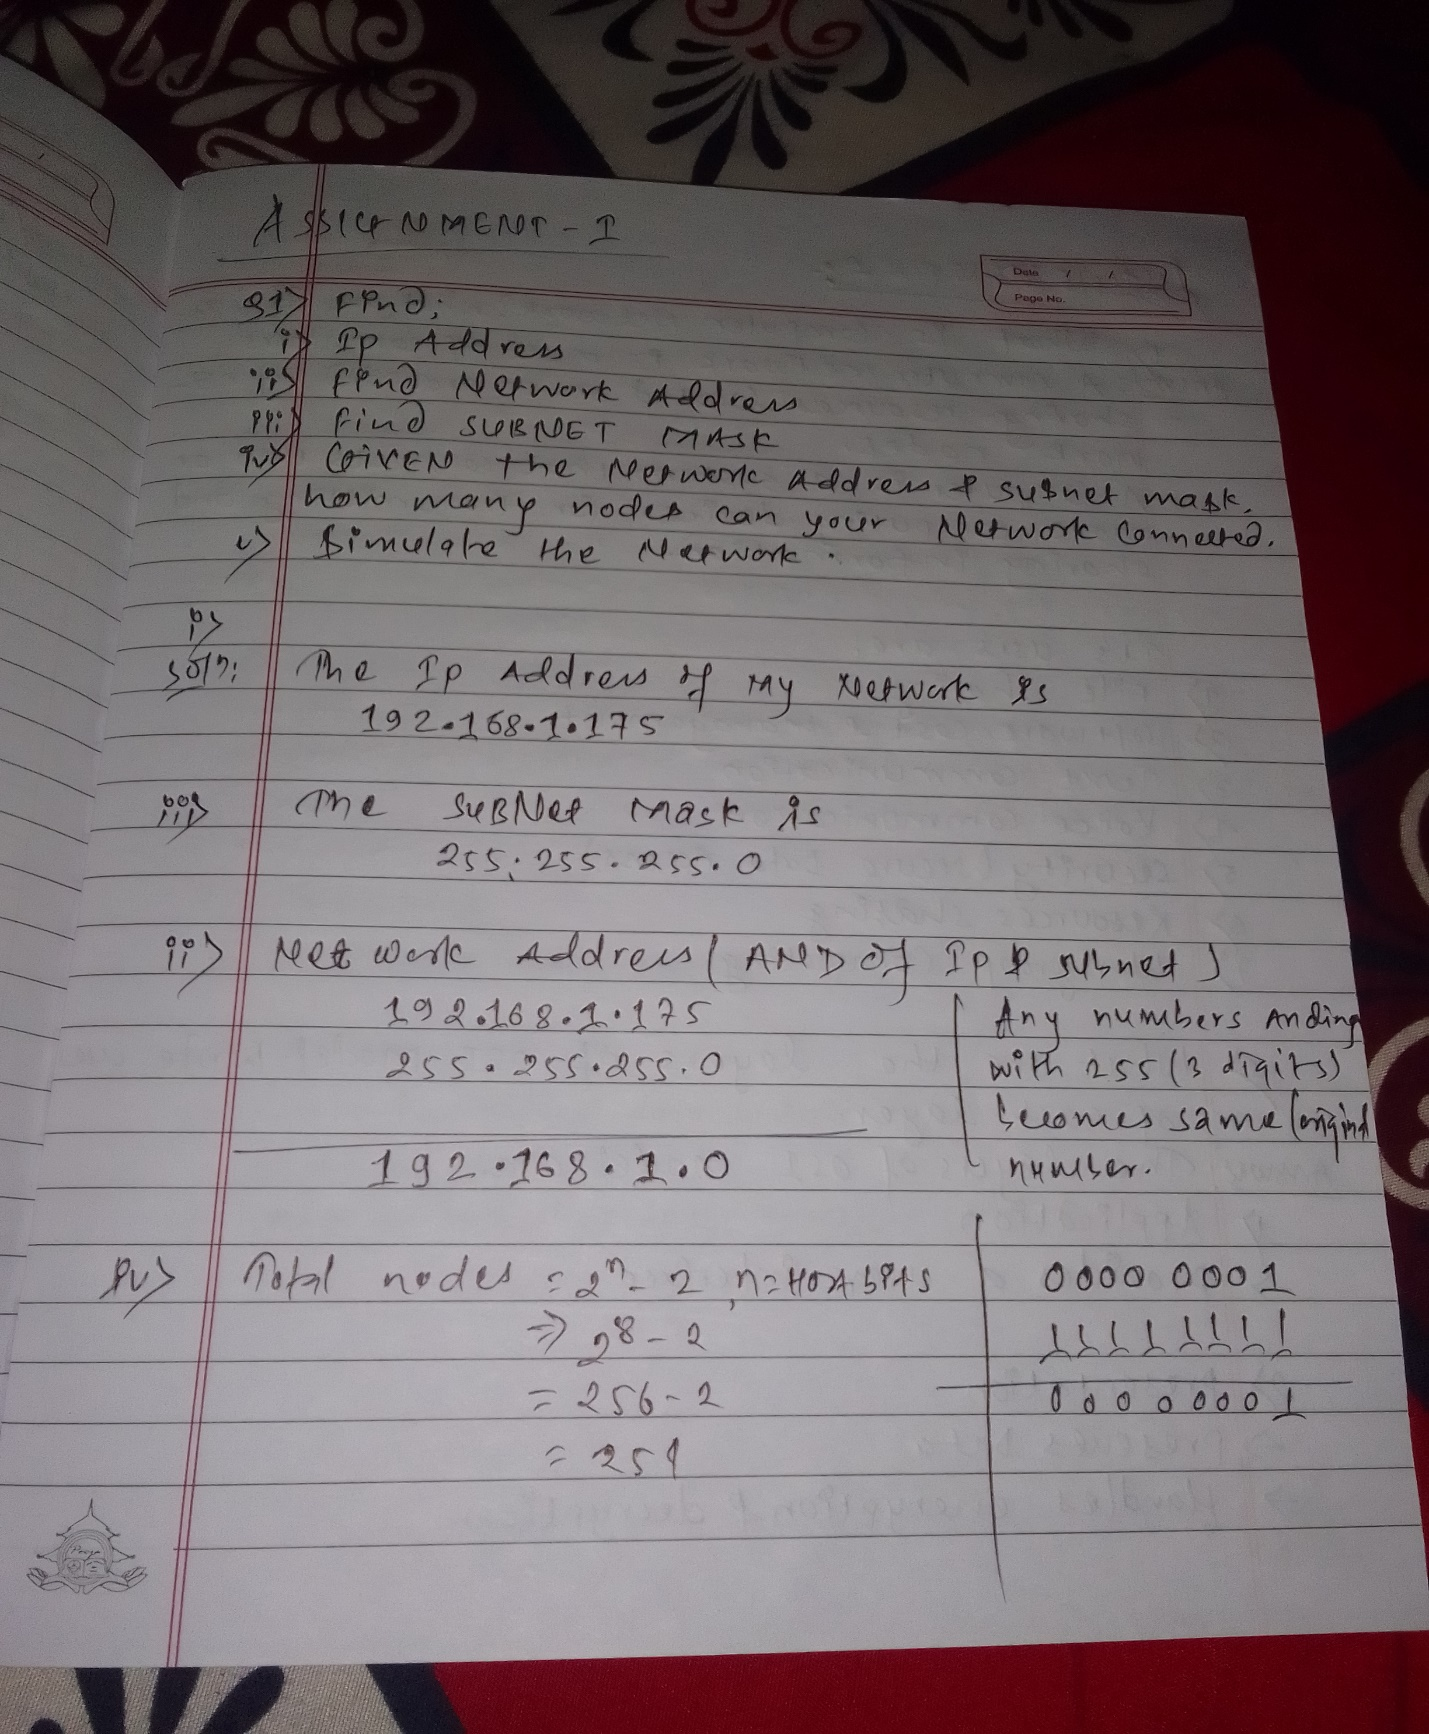 ASSIGNMENT - I
Date / /
Page No.
Q1> Find;
i> Ip Address
ii> Find Network Address
iii> Find SUBNET MASK
iv> GIVEN the Network Address & subnet mask,
how many nodes can your Network Connected.
v> Simulate the Network.
i>
soln: The Ip Address of My Network is
192.168.1.175
iii> The SUBNet Mask is
255.255.255.0
ii> Network Address (AND of Ip & subnet)
192.168.1.175
255.255.255.0
192.168.1.0
Any numbers Anding
with 255 (3 digits)
becomes same (original
number.
iv> Total nodes = 2ⁿ - 2, n = HOst bits
=> 2⁸ - 2
= 256 - 2
= 254
0000 0001
1111 1111
0000 0001